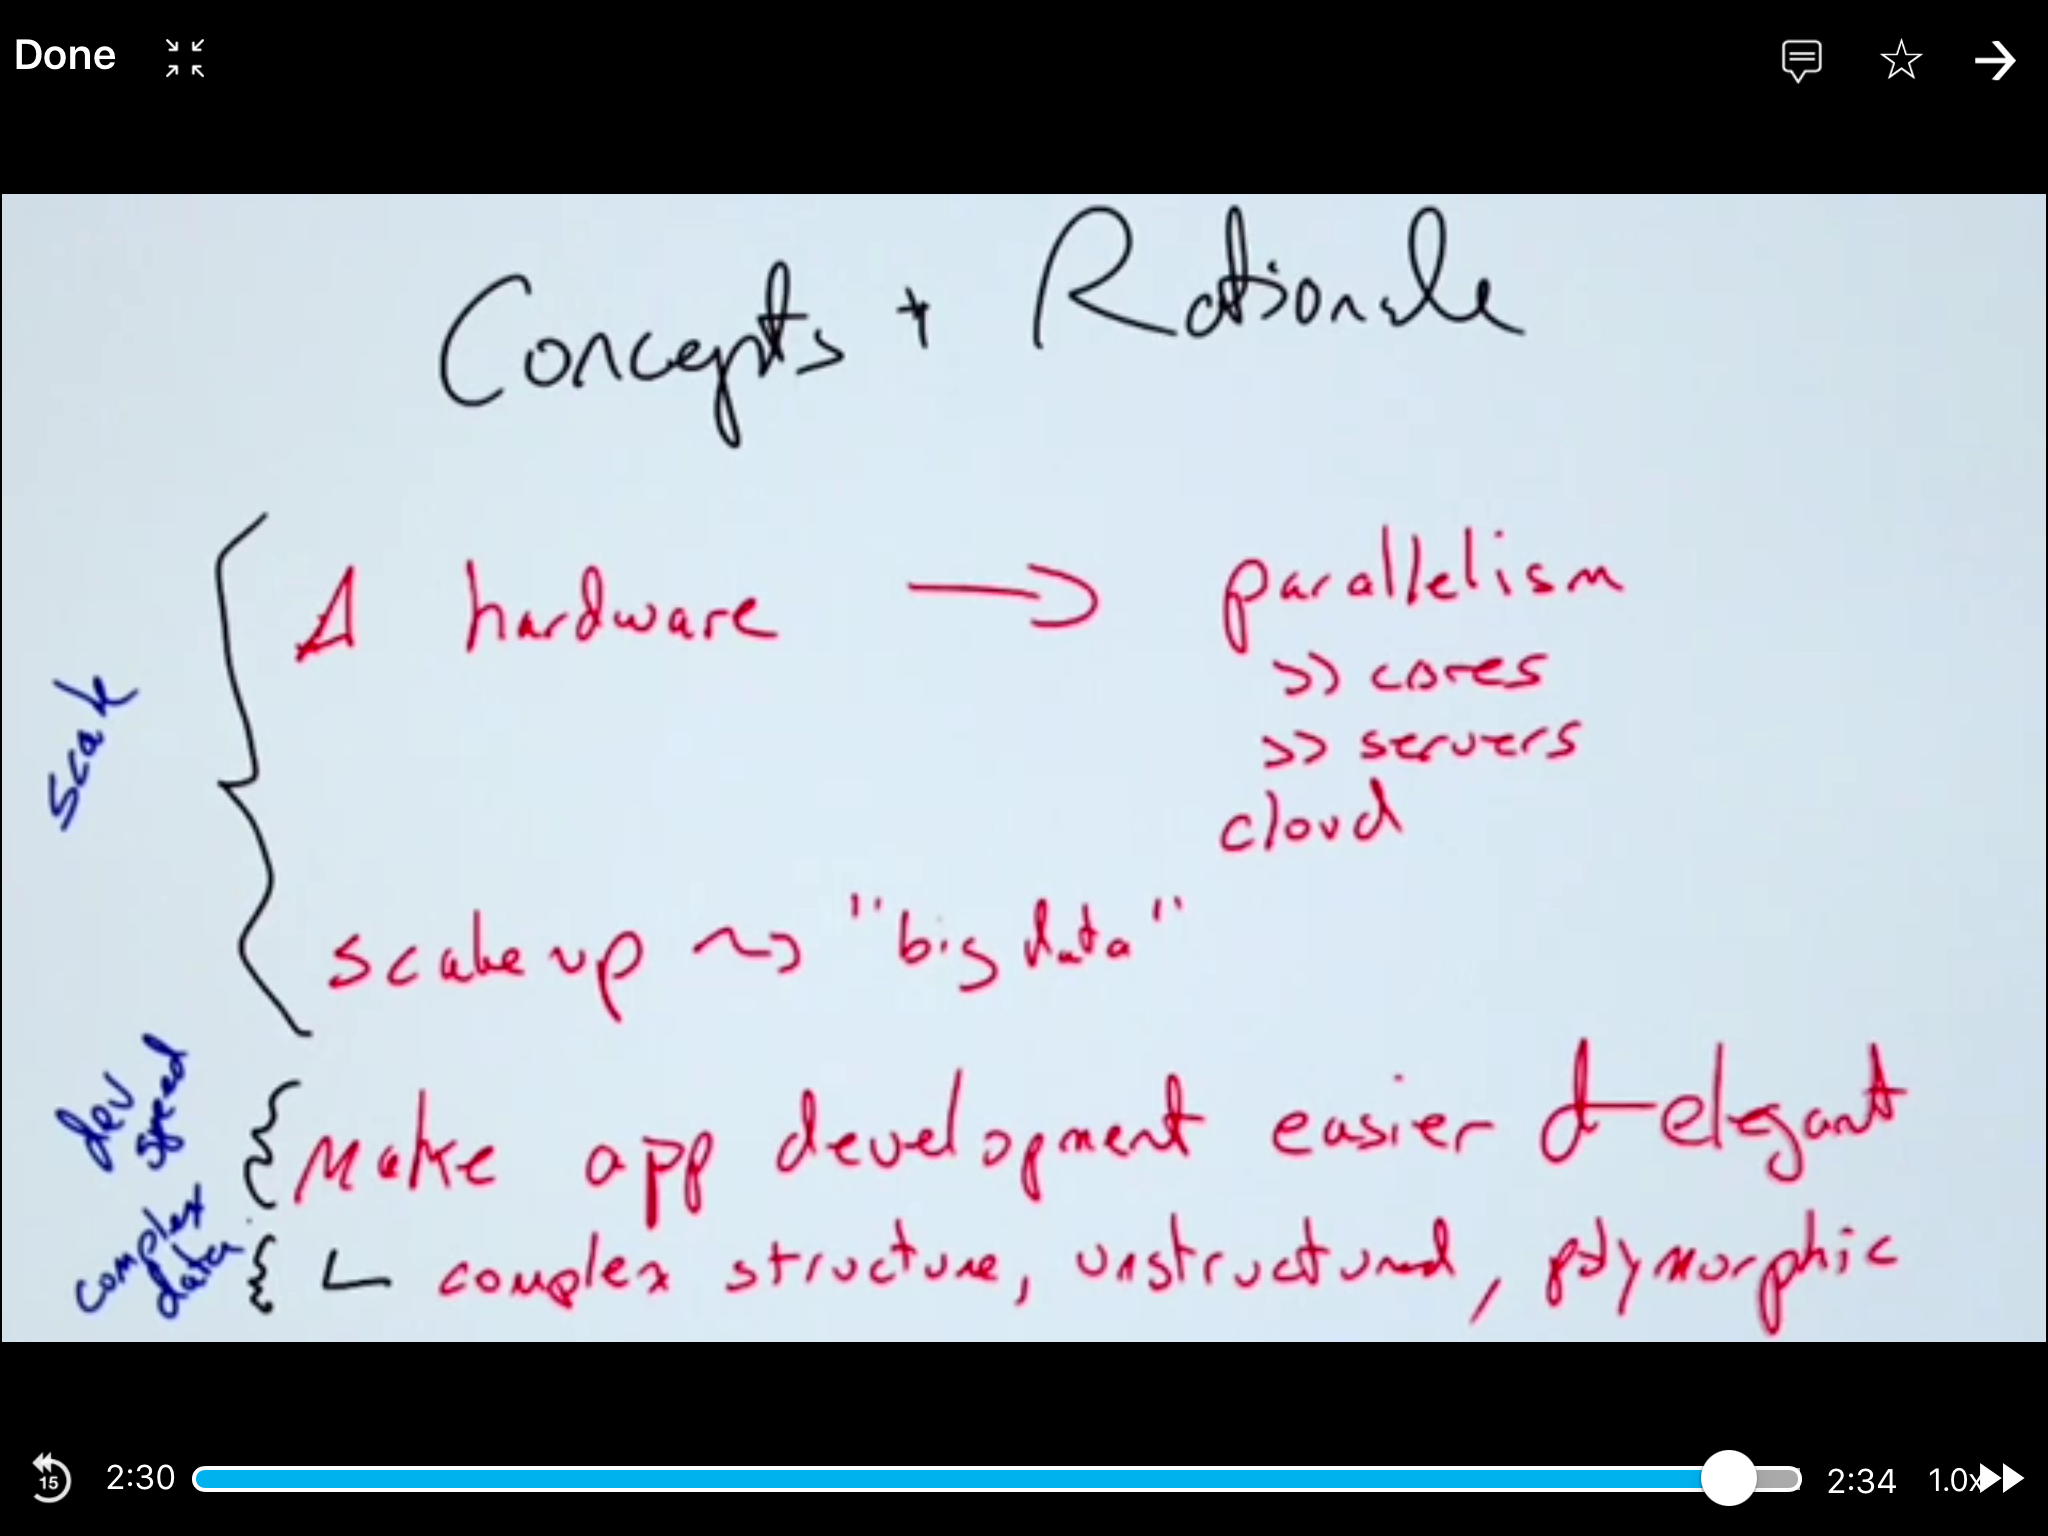 Done
Concepts + Rationale
scale
Δ hardware → parallelism
>> cores
>> servers
cloud
scale up ~> "big data"
dev speed
Make app development easier & elegant
complex data
complex structure, unstructured, polymorphic
15
2:30
2:34
1.0x